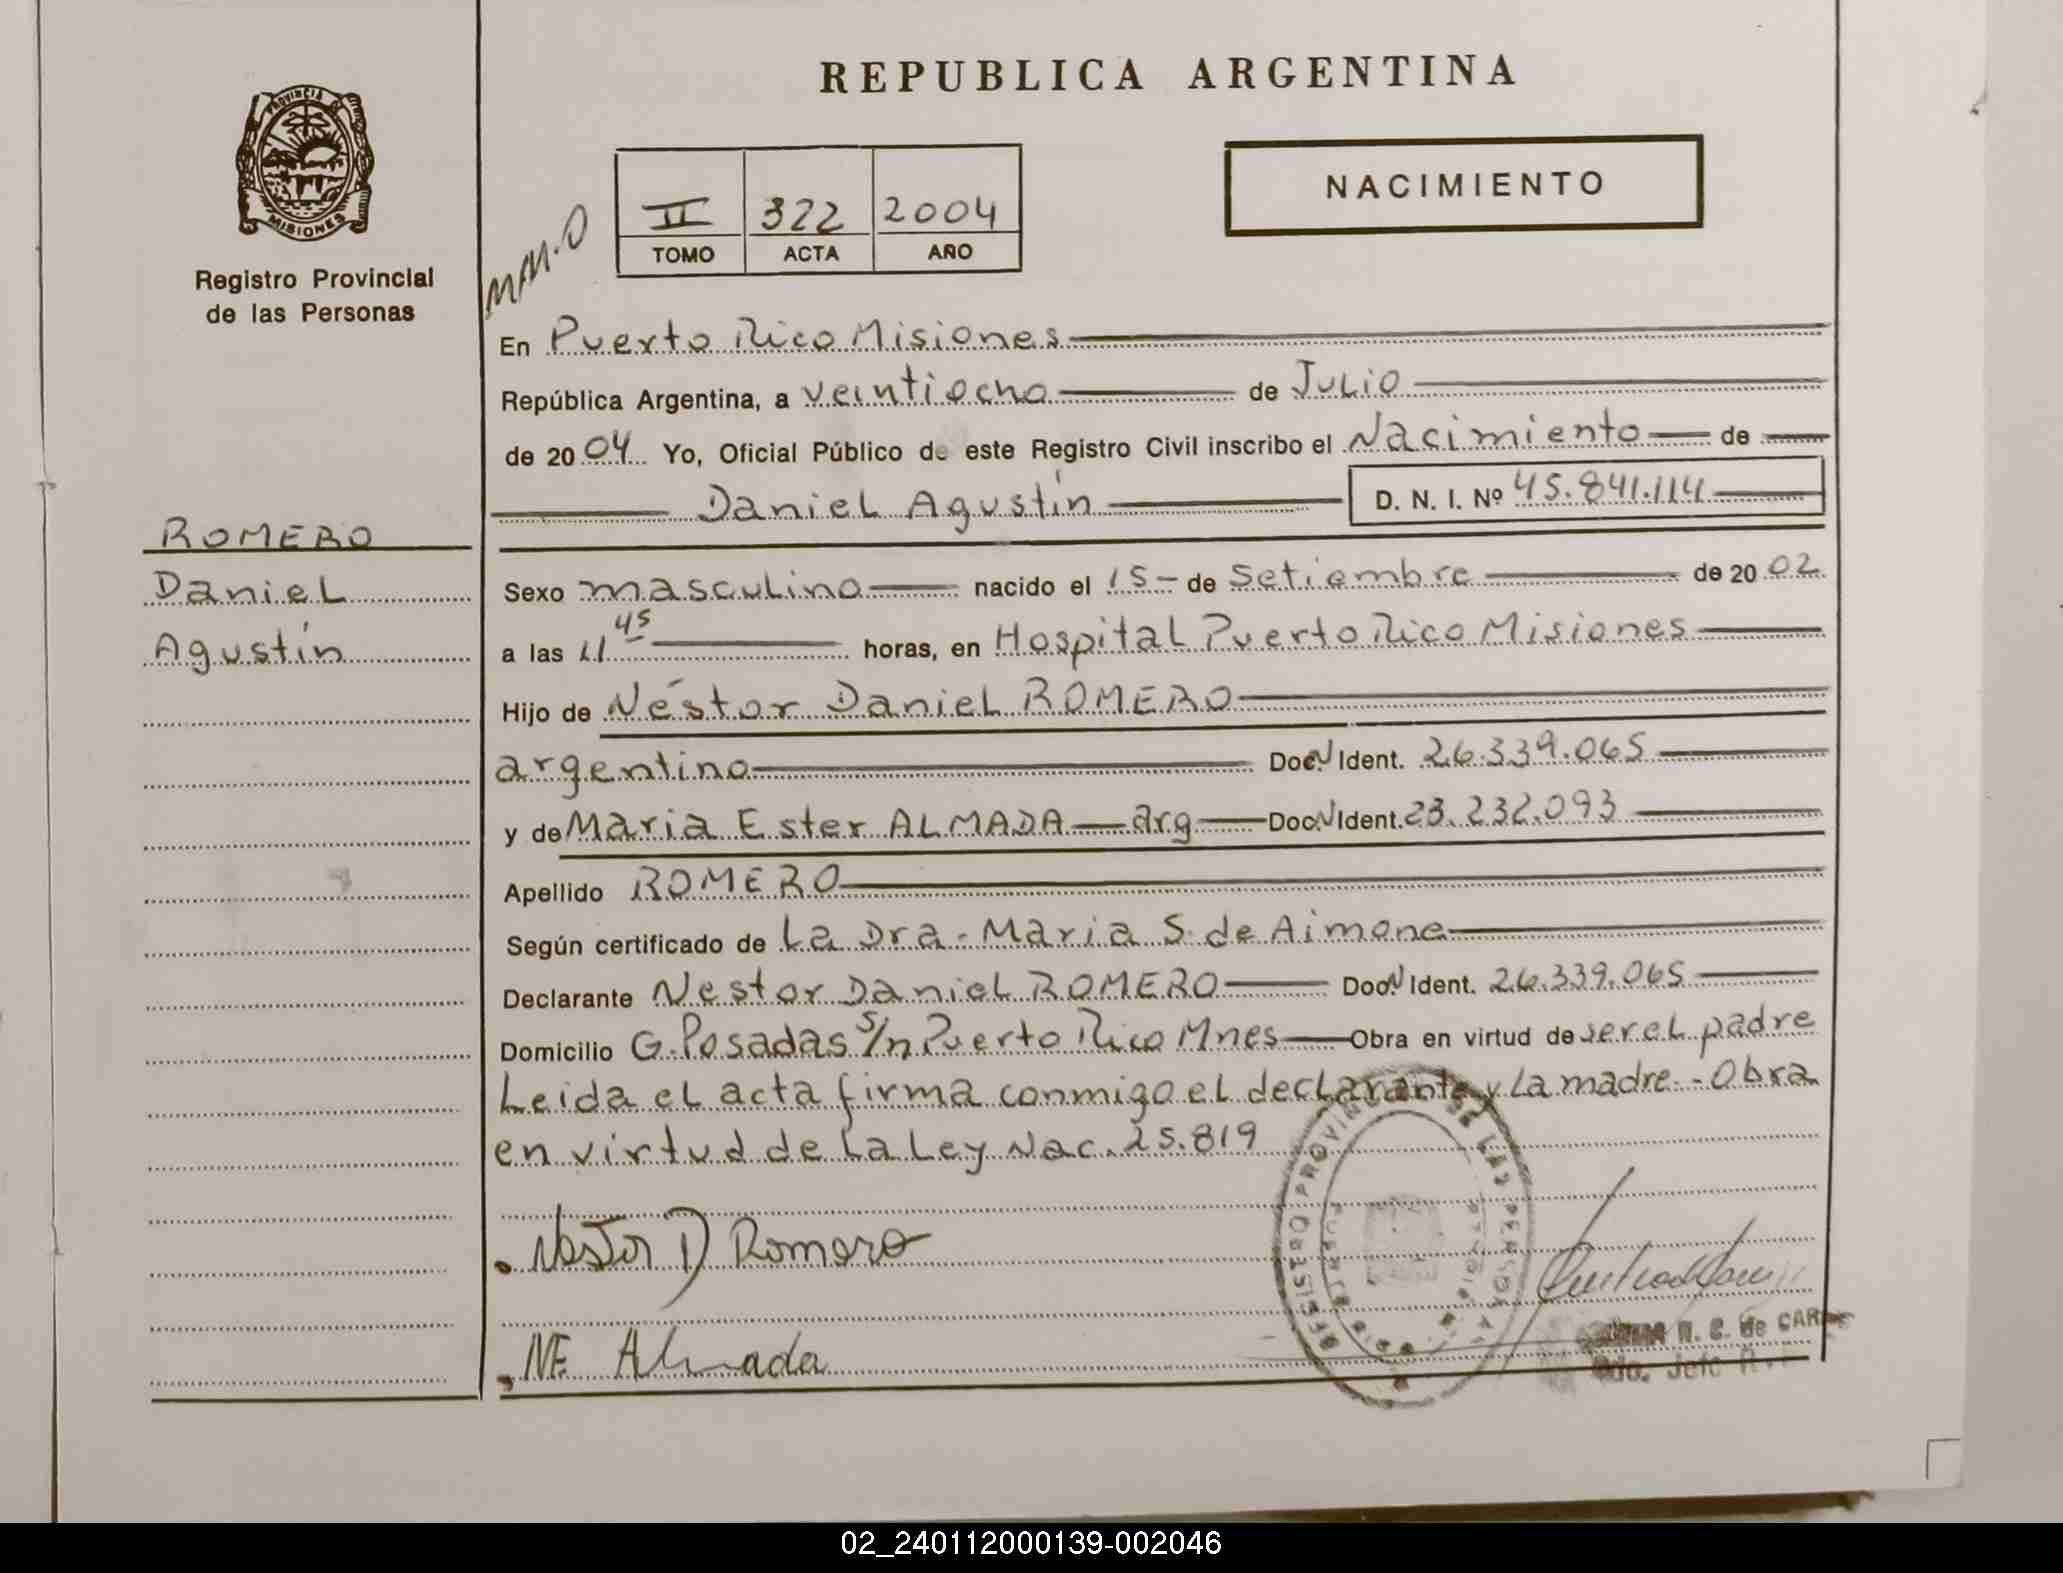 REPUBLICA ARGENTINA
PROVINCIA DE MISIONES
Registro Provincial
de las Personas
NACIMIENTO
II 322 2004
TOMO ACTA AÑO
En Puerto Rico Misiones
República Argentina, a veintiocho de Julio
de 2004 Yo, Oficial Público de este Registro Civil inscribo el Nacimiento de
Daniel Agustín D. N. I. Nº 45.841.114
ROMERO
Daniel
Agustín
Sexo masculino nacido el 15 de Setiembre de 2002
a las 11 45 horas, en Hospital Puerto Rico Misiones
Hijo de Néstor Daniel ROMERO
argentino Doc. N Ident. 26.339.065
y de Maria Ester ALMADA arg Doc. N Ident. 23.232.093
Apellido ROMERO
Según certificado de La Dra. Maria S. de Aimone
Declarante Nestor Daniel ROMERO Doc. N Ident. 26.339.065
Domicilio G. Posadas s/n Puerto Rico Mnes Obra en virtud de ser el padre
Leida el acta firma conmigo el declarante y la madre.- Obra
en virtud de la Ley Nac. 25.819
Nestor D Romero
ME. Almada
REGISTRO PROVINCIAL DE LAS PERSONAS
PUERTO RICO
de CAR
Jefe
02_240112000139-002046